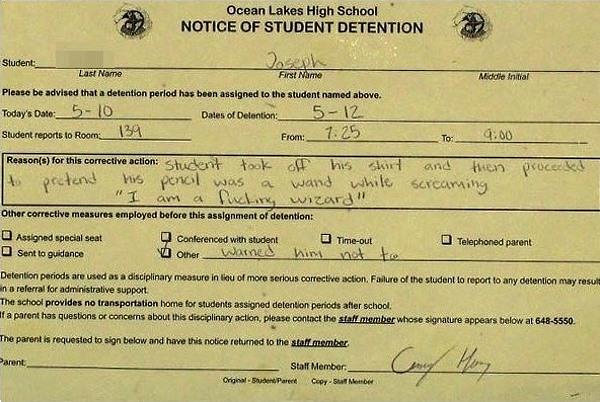 Ocean Lakes High School
NOTICE OF STUDENT DETENTION
Student: Joseph
Last Name First Name Middle Initial
Please be advised that a detention period has been assigned to the student named above.
Today's Date: 5-10 Dates of Detention: 5-12
Student reports to Room: 139 From: 7:25 To: 9:00
Reason(s) for this corrective action: Student took off his shirt and then proceeded
to pretend his pencil was a wand while screaming
"I am a fucking wizard"
Other corrective measures employed before this assignment of detention:
Assigned special seat Conferenced with student Time-out Telephoned parent
Sent to guidance Other warned him not to
Detention periods are used as a disciplinary measure in lieu of more serious corrective action. Failure of the student to report to any detention may result
in a referral for administrative support.
The school provides no transportation home for students assigned detention periods after school.
If a parent has questions or concerns about this disciplinary action, please contact the staff member whose signature appears below at 648-5550.
The parent is requested to sign below and have this notice returned to the staff member.
Parent: Staff Member:
Original - Student/Parent Copy - Staff Member